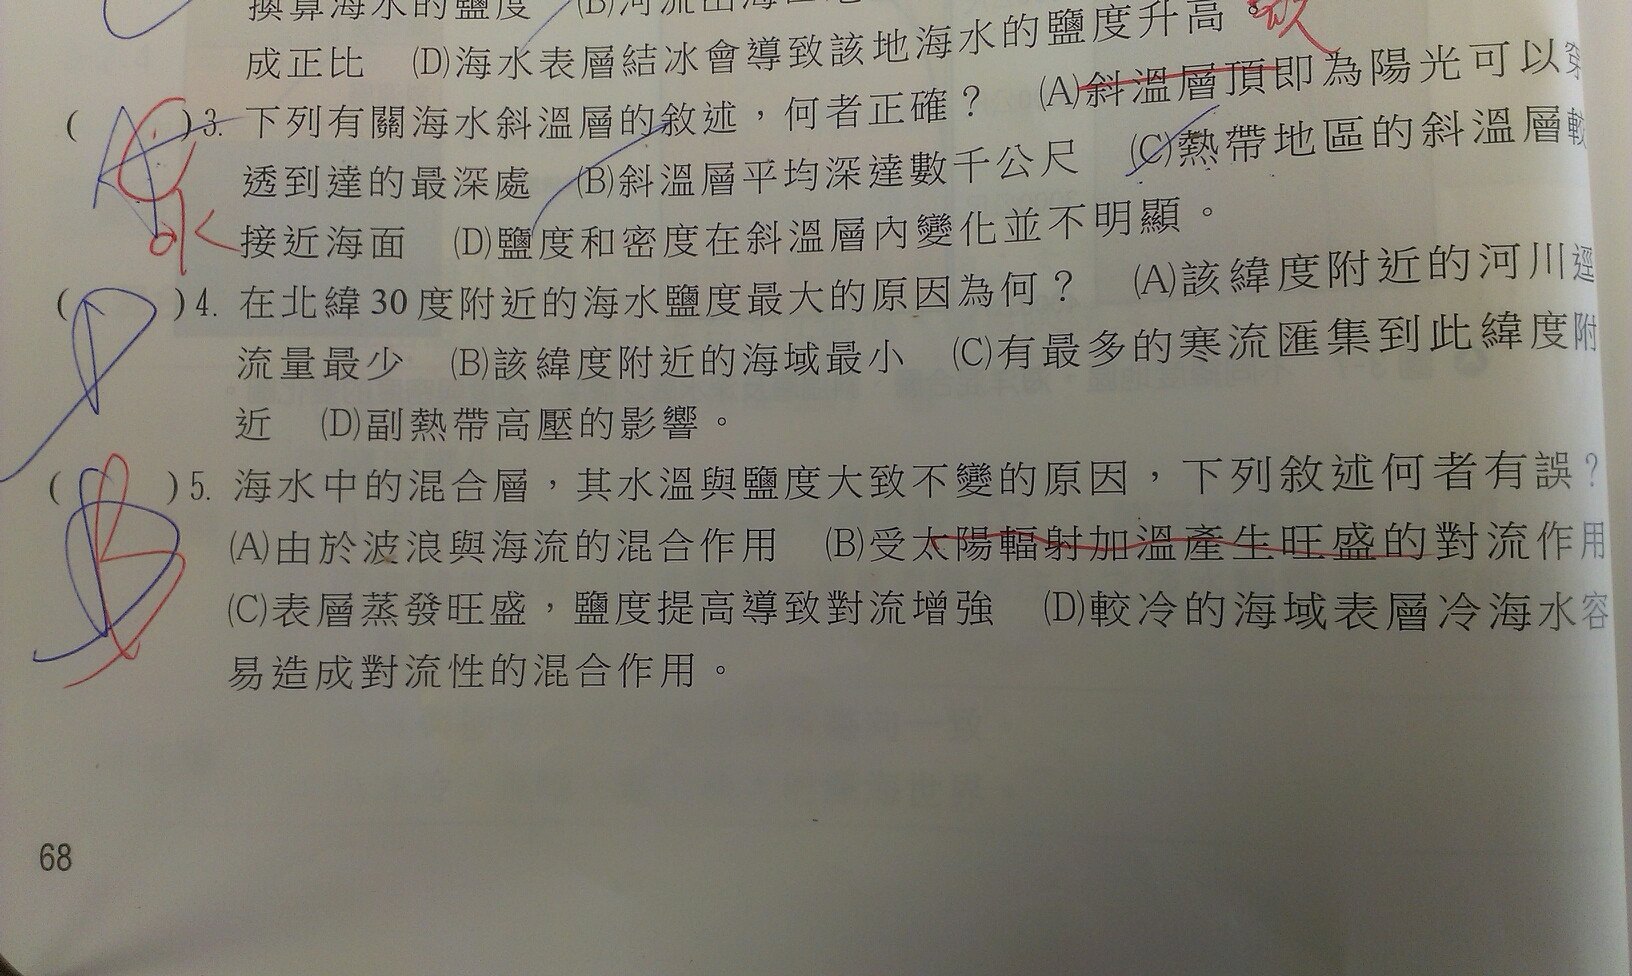 換算海水的鹽度 (B)河流出海
成正比 (D)海水表層結冰會導致該地海水的鹽度升高。
( )3. 下列有關海水斜溫層的敘述，何者正確？ (A)斜溫層頂即為陽光可以穿
透到達的最深處 (B)斜溫層平均深達數千公尺 (C)熱帶地區的斜溫層較
接近海面 (D)鹽度和密度在斜溫層內變化並不明顯。
( )4. 在北緯30度附近的海水鹽度最大的原因為何？ (A)該緯度附近的河川逕
流量最少 (B)該緯度附近的海域最小 (C)有最多的寒流匯集到此緯度附
近 (D)副熱帶高壓的影響。
( B )5. 海水中的混合層，其水溫與鹽度大致不變的原因，下列敘述何者有誤？
(A)由於波浪與海流的混合作用 (B)受太陽輻射加溫產生旺盛的對流作用
(C)表層蒸發旺盛，鹽度提高導致對流增強 (D)較冷的海域表層冷海水容
易造成對流性的混合作用。
68